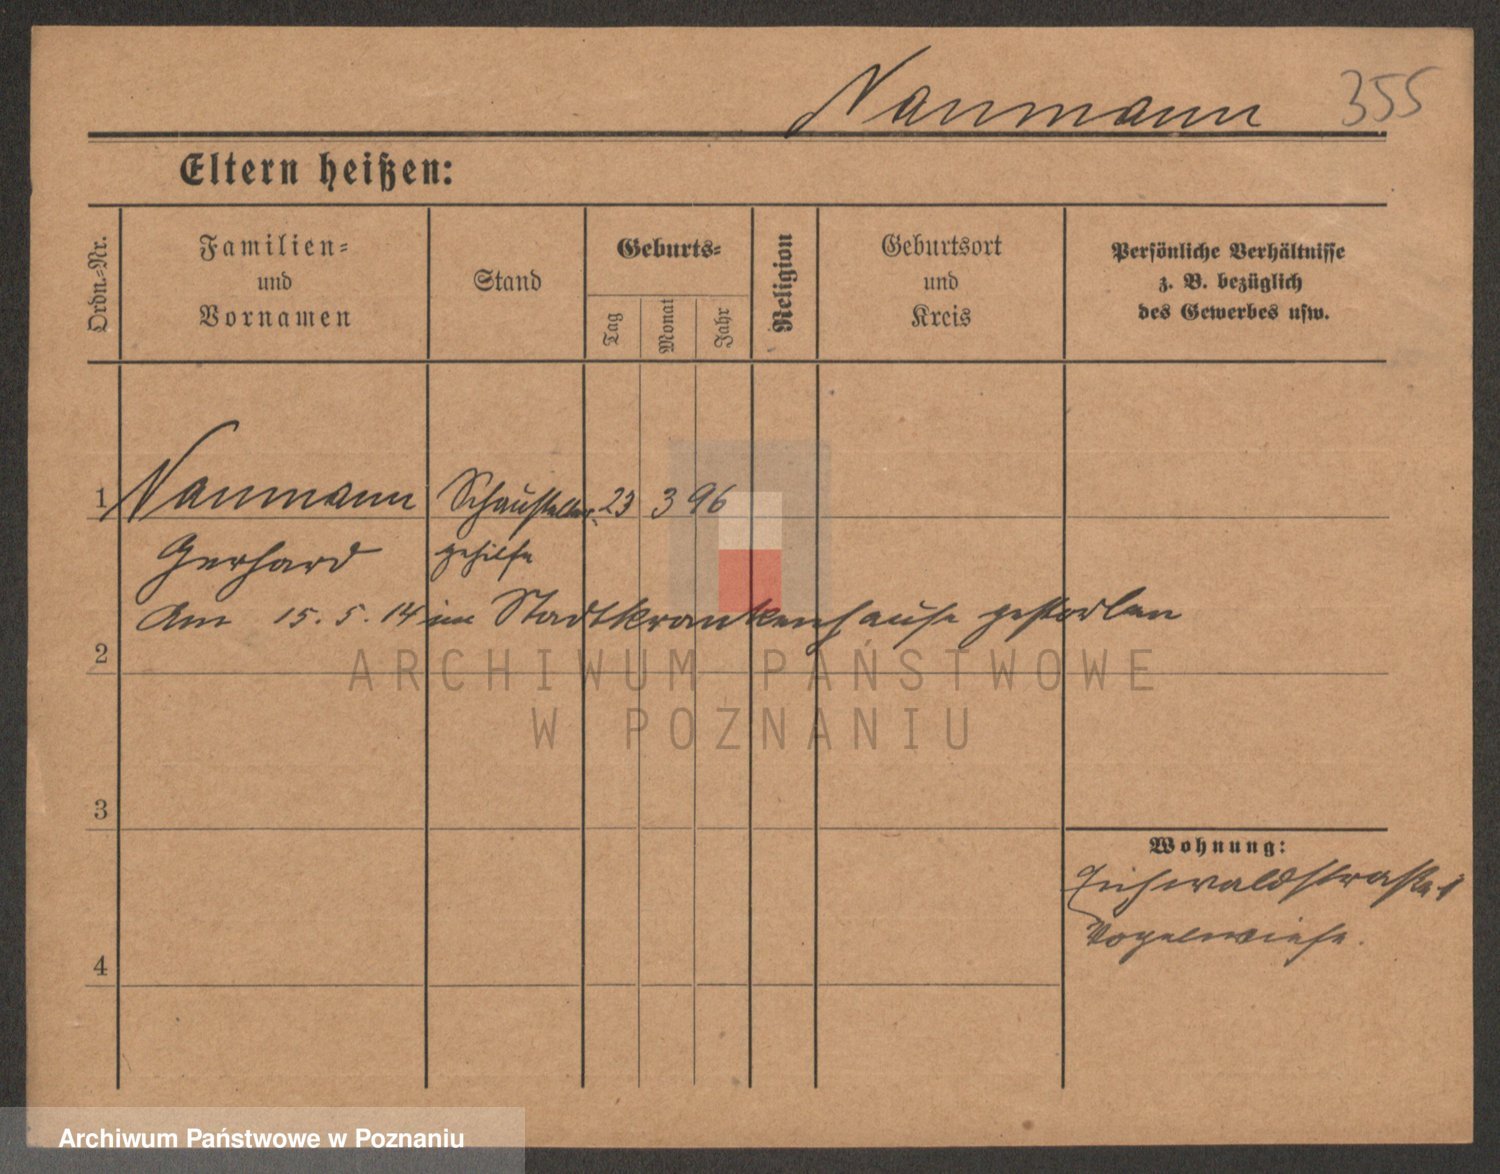 Naumann 355
Eltern heißen:
Ordn.-Nr.
Familien-
und
Vornamen
Stand
Geburts-
Tag
Monat
Jahr
Religion
Geburtsort
und
Kreis
Persönliche Verhältnisse
z. B. bezüglich
des Gewerbes usw.
1 Naumann Schausteller- 23 3 96
Gerhard gehilfe
Am 15. 5. 14 im Stadtkrankenhause gestorben
2
ARCHIWUM PAŃSTWOWE
W POZNANIU
3
Wohnung:
Eichwaldstraße
Vogelwiese.
4
Archiwum Państwowe w Poznaniu